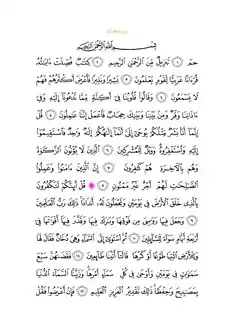 بِسْمِ ٱللَّهِ ٱلرَّحْمَٰنِ ٱلرَّحِيمِ
حمٓ ١ تَنزِيلٌ مِّنَ ٱلرَّحْمَٰنِ ٱلرَّحِيمِ ٢ كِتَٰبٌ فُصِّلَتْ ءَايَٰتُهُۥ
قُرْءَانًا عَرَبِيًّا لِّقَوْمٍ يَعْلَمُونَ ٣ بَشِيرًا وَنَذِيرًا فَأَعْرَضَ أَكْثَرُهُمْ فَهُمْ
لَا يَسْمَعُونَ ٤ وَقَالُوا۟ قُلُوبُنَا فِىٓ أَكِنَّةٍ مِّمَّا تَدْعُونَآ إِلَيْهِ وَفِىٓ
ءَاذَانِنَا وَقْرٌ وَمِنۢ بَيْنِنَا وَبَيْنِكَ حِجَابٌ فَٱعْمَلْ إِنَّنَا عَٰمِلُونَ ٥ قُلْ
إِنَّمَآ أَنَا۠ بَشَرٌ مِّثْلُكُمْ يُوحَىٰٓ إِلَىَّ أَنَّمَآ إِلَٰهُكُمْ إِلَٰهٌ وَٰحِدٌ فَٱسْتَقِيمُوٓا۟
إِلَيْهِ وَٱسْتَغْفِرُوهُ وَوَيْلٌ لِّلْمُشْرِكِينَ ٦ ٱلَّذِينَ لَا يُؤْتُونَ ٱلزَّكَوٰةَ
وَهُم بِٱلْءَاخِرَةِ هُمْ كَٰفِرُونَ ٧ إِنَّ ٱلَّذِينَ ءَامَنُوا۟ وَعَمِلُوا۟
ٱلصَّٰلِحَٰتِ لَهُمْ أَجْرٌ غَيْرُ مَمْنُونٍ ٨ ۞ قُلْ أَئِنَّكُمْ لَتَكْفُرُونَ
بِٱلَّذِى خَلَقَ ٱلْأَرْضَ فِى يَوْمَيْنِ وَتَجْعَلُونَ لَهُۥٓ أَندَادًا ذَٰلِكَ رَبُّ ٱلْعَٰلَمِينَ
٩ وَجَعَلَ فِيهَا رَوَٰسِىَ مِن فَوْقِهَا وَبَٰرَكَ فِيهَا وَقَدَّرَ فِيهَآ أَقْوَٰتَهَا فِىٓ
أَرْبَعَةِ أَيَّامٍ سَوَآءً لِّلسَّآئِلِينَ ١٠ ثُمَّ ٱسْتَوَىٰٓ إِلَى ٱلسَّمَآءِ وَهِىَ دُخَانٌ فَقَالَ لَهَا
وَلِلْأَرْضِ ٱئْتِيَا طَوْعًا أَوْ كَرْهًا قَالَتَآ أَتَيْنَا طَآئِعِينَ ١١ فَقَضَىٰهُنَّ سَبْعَ
سَمَٰوَاتٍ فِى يَوْمَيْنِ وَأَوْحَىٰ فِى كُلِّ سَمَآءٍ أَمْرَهَا وَزَيَّنَّا ٱلسَّمَآءَ ٱلدُّنْيَا
بِمَصَٰبِيحَ وَحِفْظًا ذَٰلِكَ تَقْدِيرُ ٱلْعَزِيزِ ٱلْعَلِيمِ ١٢ فَإِنْ أَعْرَضُوا۟ فَقُلْ